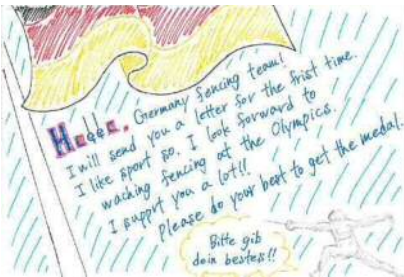 Hello, Germany fencing team!
I will send you a letter for the frist time.
I like sport so. I look forward to
waching fencing at the Olympics.
I supprt you a lot!!
Please do your best to get the medal.
Bitte gib
dein bestes!!